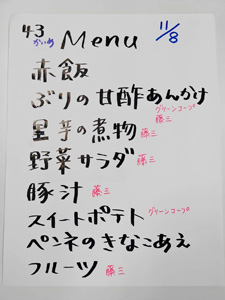 43 かいめ Menu 11/8
赤飯
ぶりの甘酢あんかけ
グリーンコープ
藤三
里芋の煮物 藤三
野菜サラダ 藤三
豚汁 藤三
スイートポテト グリーンコープ
ペンネのきなこあえ
フルーツ 藤三